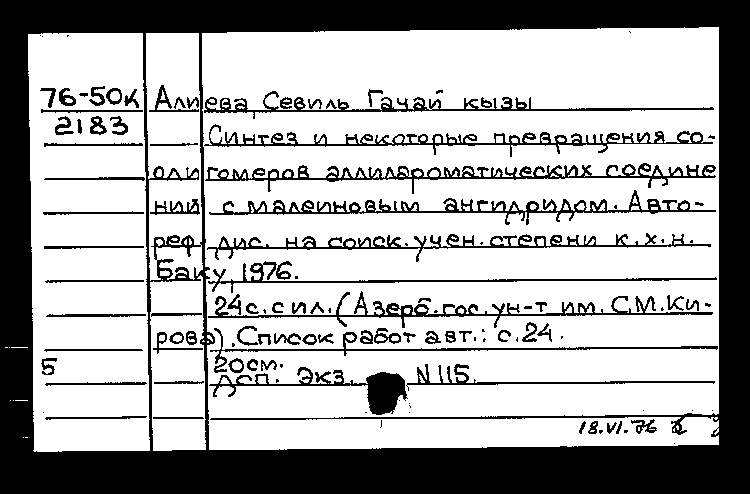 76-50к Алиева, Севиль Гачай кызы
2183 Синтез и некоторые превращения со-
олигомеров аллилароматических соедине
ний с малеиновым ангидридом. Авто-
реф. дис. на соиск. учен. степени к.х.н.
Баку, 1976.
24 с. с ил. (Азерб. гос. ун-т им. С.М. Ки-
рова). Список работ авт.: с. 24.
20 см.
5 Дсп. Экз. N 115.
18.VI.76